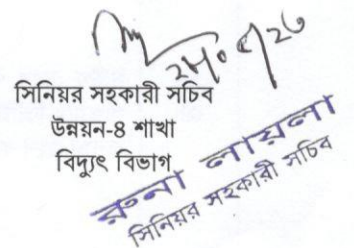 সিনিয়র সহকারী সচিব
উন্নয়ন-৪ শাখা
বিদ্যুৎ বিভাগ
রুনা লায়লা
সিনিয়র সহকারী সচিব